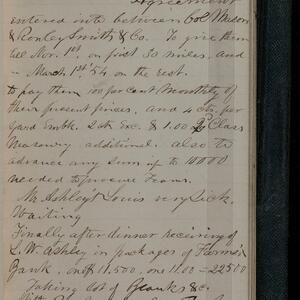 Agreement
entered into between Col Mason
& Ronley Smith & Co. To give them
till Nov. 1st, on first 30 miles, and
March 1st '54 on the rest.
to pay them 100 per cent Monthly of
their present prices, and 4 cts. per
yard Embk. 20th Exc. & 1.00 2d Class
Masonry additional. also to
advance any sum up to 10000
needed to procure Teams.
Mr Ashley & Louis very Sick.
Waiting
Finally after dinner receiving of
L. W. Ashley in packages of Farmers
Bank, one 11,500, one 11.00 = 22500
Taking lot of blanks &c.